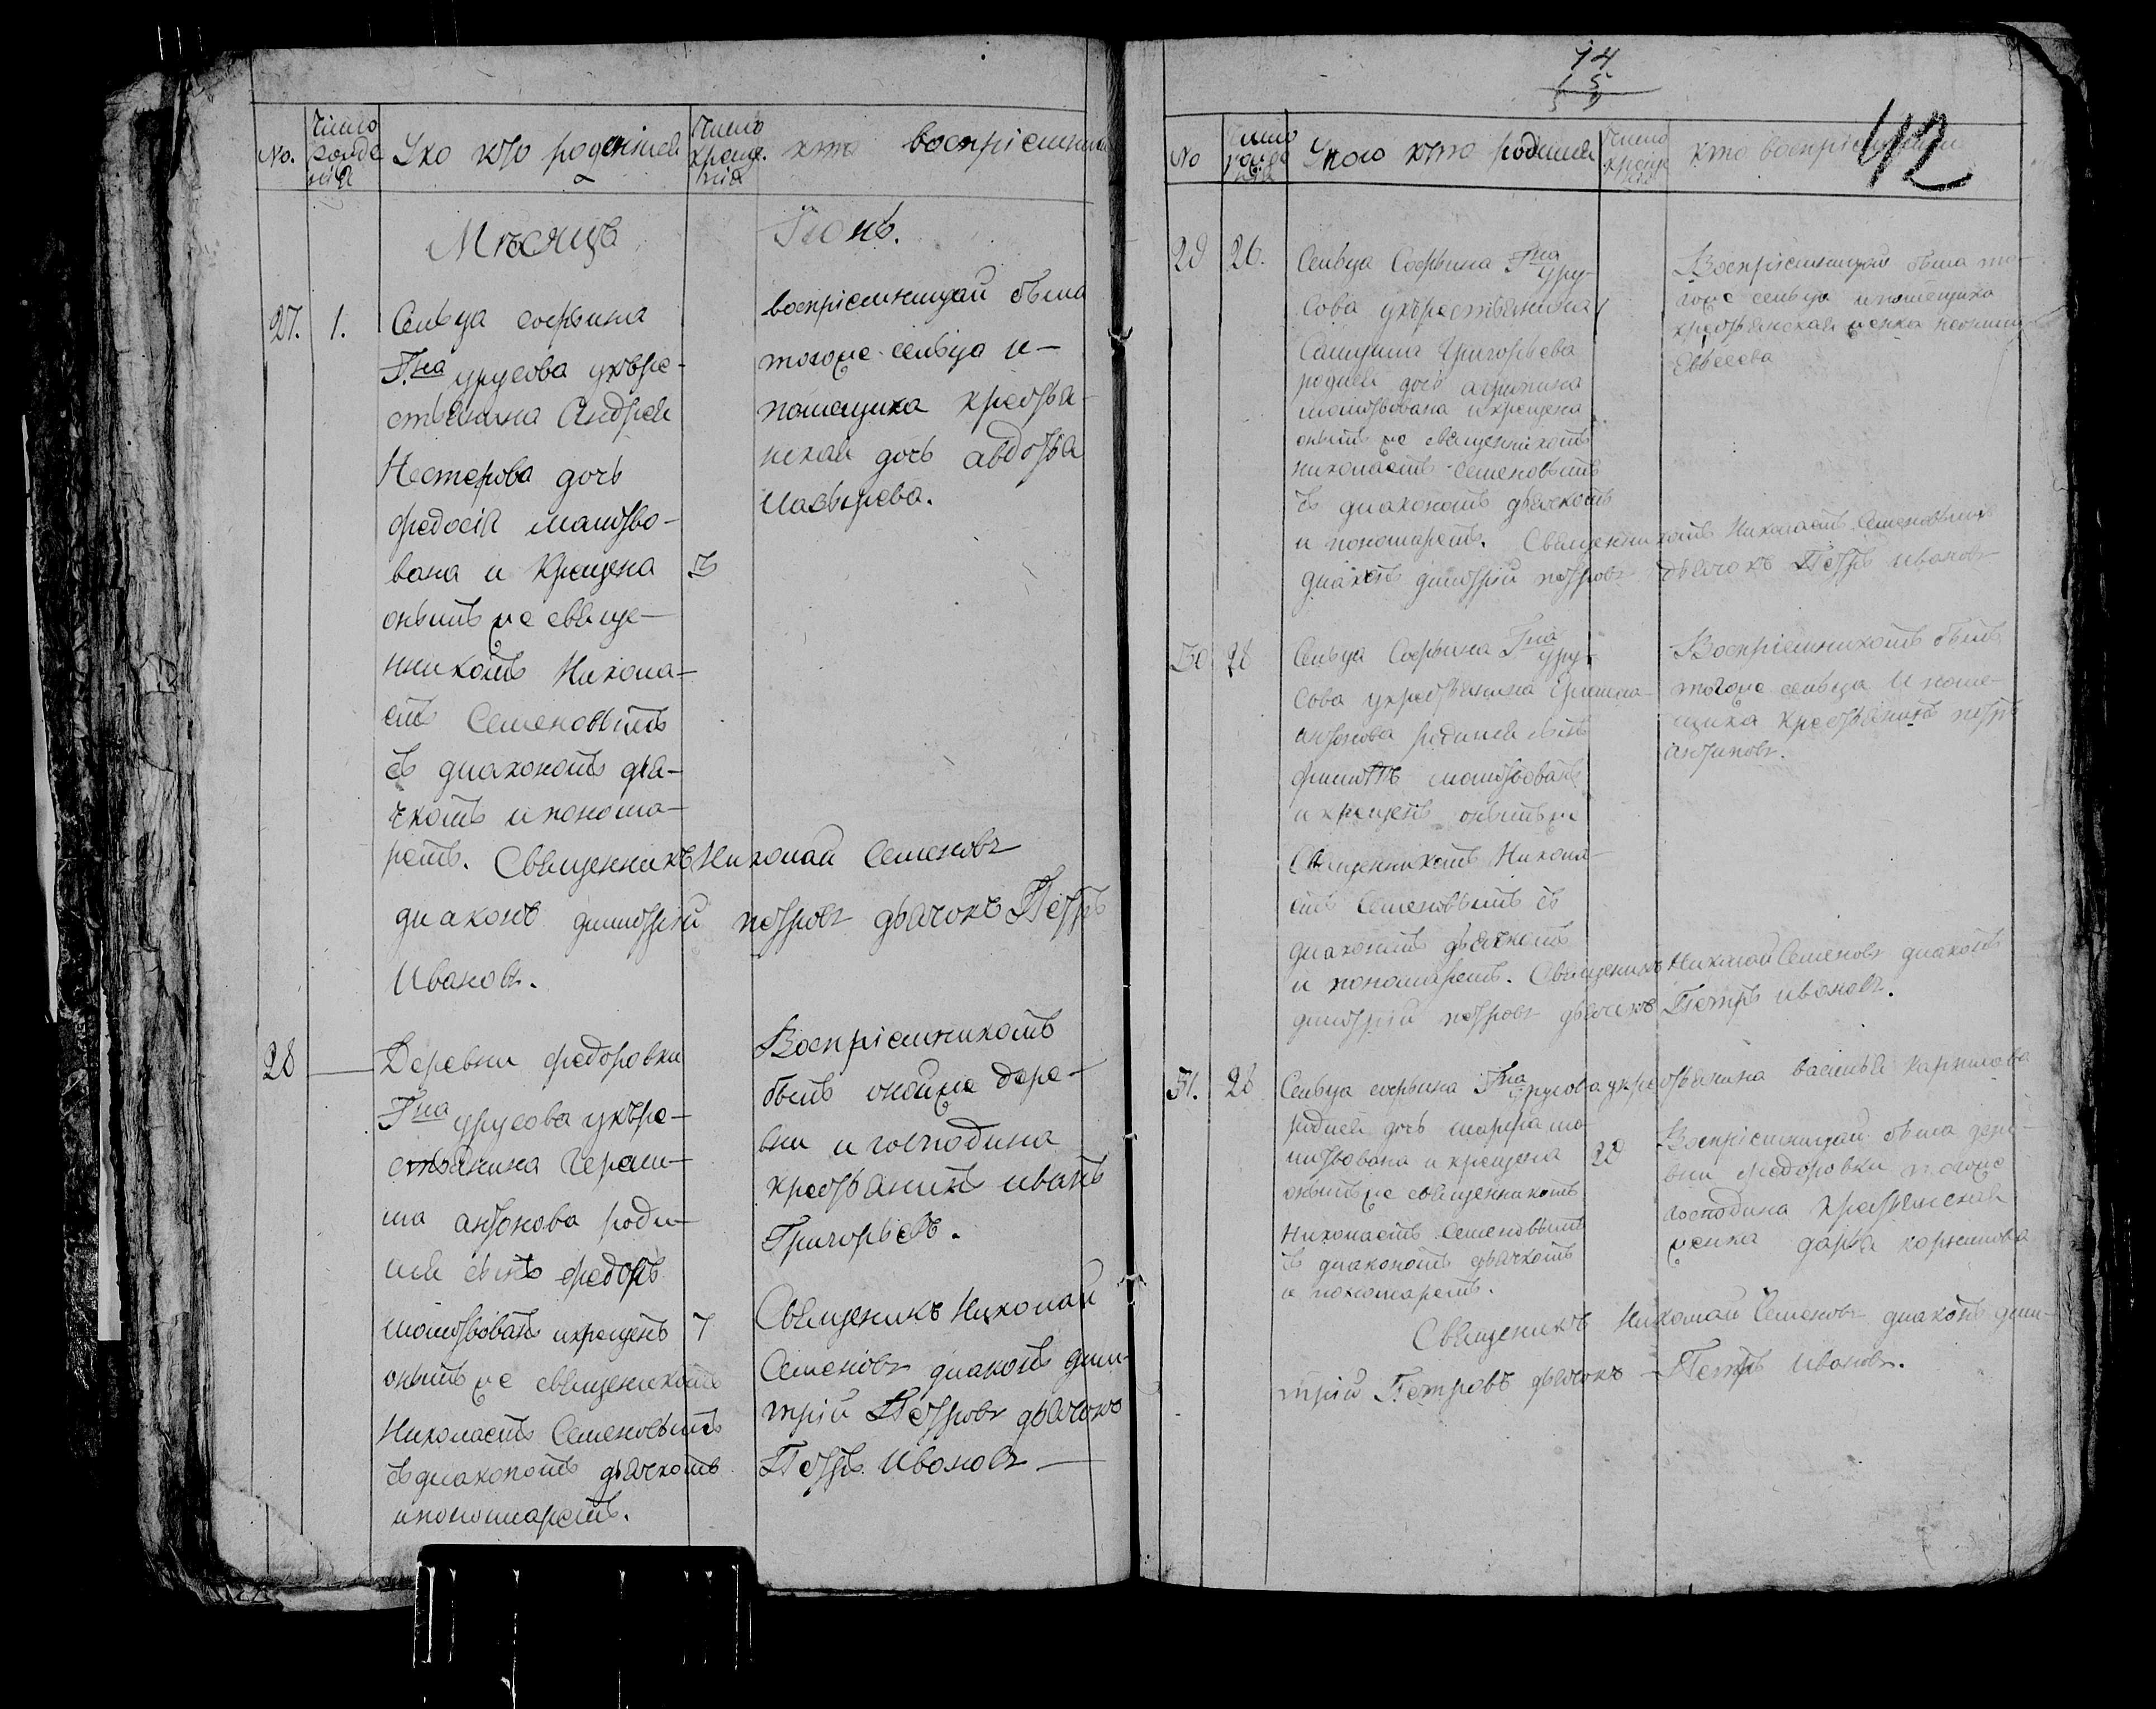 No.
Число рожде нія
У ко кто родился
Число креще. нія
кто воспріемники
Мѣсяцъ Іюнь.
27. 1. Сельца софьина
Гна урусова укъре-
стьянина Андрея
Нестерова дочь
федосія молитво-
вана и крещена 3
онымъ же свяще-
нникомъ Никола-
емъ Семеновымъ
съ диакономъ дья-
чкомъ и понома-
ремъ. Священникъ Николай Семеновъ
диаконъ димитрій петровъ дьячокъ Петръ
Ивановъ.
воспріемницай была
тогоже сельца и-
помещика крестья-
нская дочь авдотья
Лазырева.
28 — Деревни федоровки
Гна урусова укъре-
стьянина Гераси-
ма антонова роди-
лся сынъ федоръ
молитвованъ икрещенъ 7
онымъ же священикомъ
Николаемъ Семеновымъ
съдиакономъ дьячкомъ
ипономаремъ.
Воспріемникомъ
былъ онойже дере-
вни и господина
крестьянинъ иванъ
Григорьевъ.
Священикъ Николай
Семеновъ диаконъ дми-
трій Петровъ дьячокъ
Петръ Ивановъ —
14
15
42
No
Число рожде нія
У кого кто родился
Число креще нія
кто воспріемники
29 26. Сельца Софьина Гна уру-
сова укърестьянина
Григорьева
родися дочь агрипина
молитвована и крещена
онымъ же священникомъ
николаемъ семеновымъ
съ диакономъ дьячкомъ
и пономаремъ. Священникомъ Николаемъ Семеновымъ
диаконъ димитрій петровъ дьячокъ Петръ ивановъ
Воспріемницай была то-
гоже сельца ипомещика
крестьянская женка
Евсеева
30 28 Сельца Софьина Гна уру-
сова укрестьянина Ермила
антонова родился сынъ
филиппъ молитвованъ
и крещенъ онымъже
Священникомъ Никола-
емъ Семеновымъ съ
диакономъ дьячкомъ
и пономаремъ. Священикъ Николай Семеновъ диаконъ
димитрій петровъ дьячокъ Петръ ивановъ.
Воспріемникомъ былъ
тогоже сельца и поме-
щика крестьянинъ петръ
антиповъ.
31. 28 Сельца софьина Гна урусова укрестьянина василья карпилова
родися дочь марфа мо-
литвована и крещена 29
онымъже священникомъ
Николаемъ Семеновымъ
съ диакономъ дьячкомъ
и пономаремъ.
Воспріемницай была дере-
вни федоровки тогоже
господина крестьянская
женка дарья
Священикъ Николай Семеновъ диаконъ дми-
трій Петровъ дьячокъ — Петръ Ивановъ.